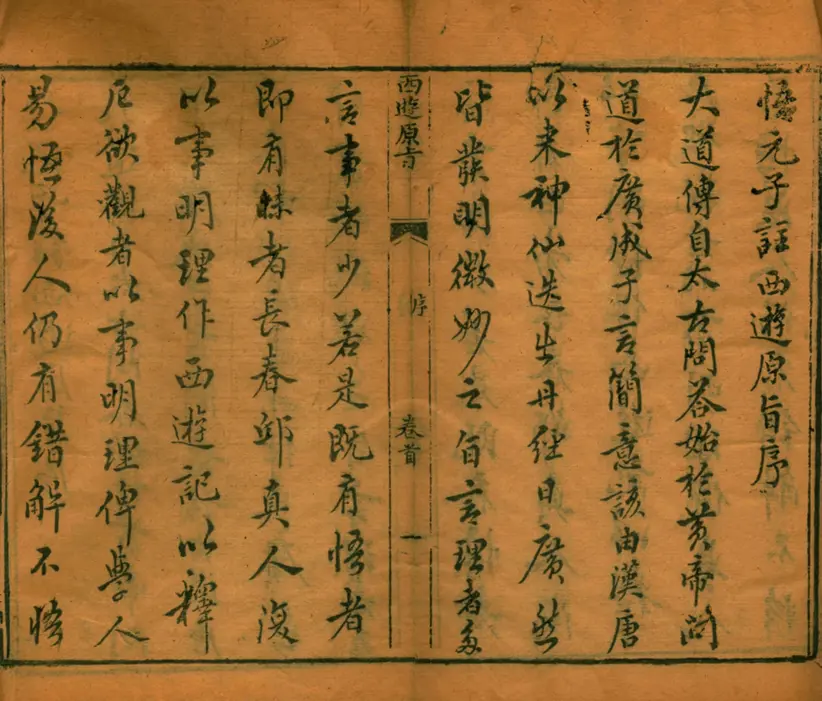 悟元子註西遊原旨序
大道傳自太古問答始於黃帝問
道於廣成子言簡意該由漢唐
以来神仙迭出丹經日廣然
皆發明微妙之旨言理者多
西遊原旨
序
卷首
一
言事者少若是既有悟者
即有昧者長春邱真人復
以事明理作西遊記以釋
厄欲觀者以事明理俾學人
易悟後人仍有錯解不悟